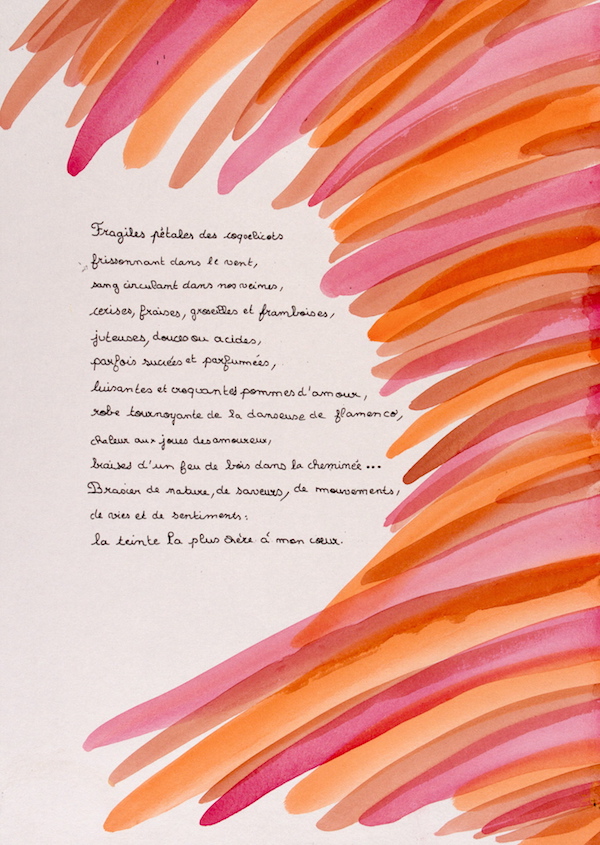 Fragiles pétales des coquelicots
frissonnant dans le vent,
sang circulant dans nos veines,
cerises, fraises, groseilles et framboises,
juteuses, douces ou acides,
parfois sucrées et parfumées,
luisantes et croquantes pommes d'amour,
robe tournoyante de la danseuse de flamenco,
chaleur aux joues des amoureux,
braises d'un feu de bois dans la cheminée...
Brasier de nature, de saveurs, de mouvements,
de vies et de sentiments :
la teinte la plus chère à mon cœur.